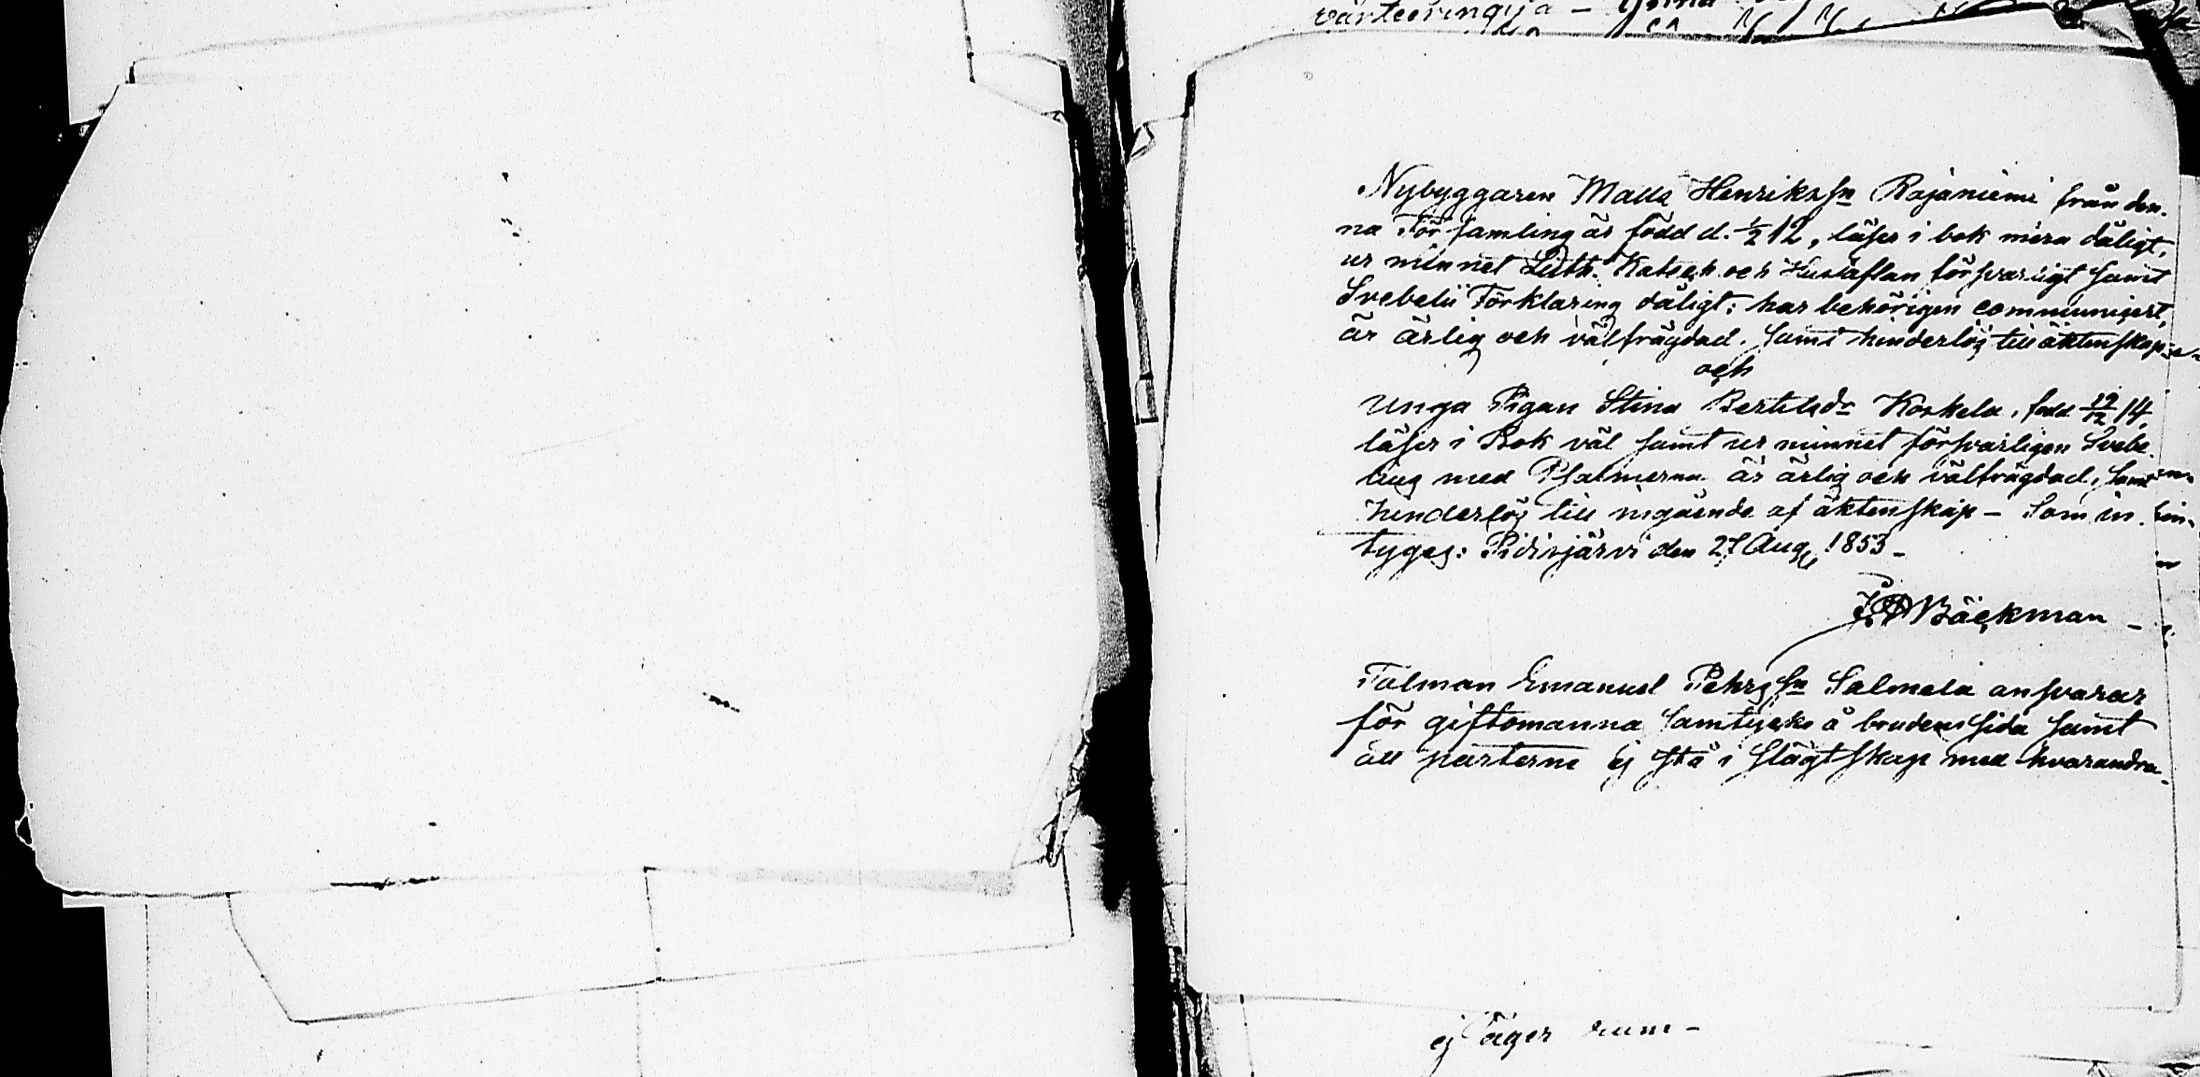 Nybyggaren Matts Henrikssn Rajaniemi från den-
na Församling är född d. 1/2 12, läser i bok mera dåligt,
ur minnet Luth. Katech. och Hustaflan försvarligt samt
Svebelii Förklaring dåligt; har behörigen communicert,
är ärlig och välfrägdad, samt hinderlös till äktenskap
och
Unga Pigan Stina Bertilsdr Koskela, född 19/12 14,
läser i Bok väl samt ur minnet försvarligen Svebe-
lius med Psalmerna är ärlig och välfrägdad, samt
hinderlös till ingående af äktenskap – Som in-
tyges: Pidisjärvi den 27 Aug. 1853 –
Bäckman
Tolman Emanuel Pehrssn Salmela ansvarar
för giftomanna samtycke å brudens sida samt
att parterne ej stå i slägtskap med hvarandra –
ej äger rum –